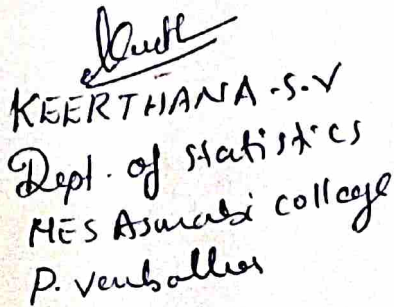 KEERTHANA.S.V
Dept. of Statistics
MES Asmabi college
P. Vemballur